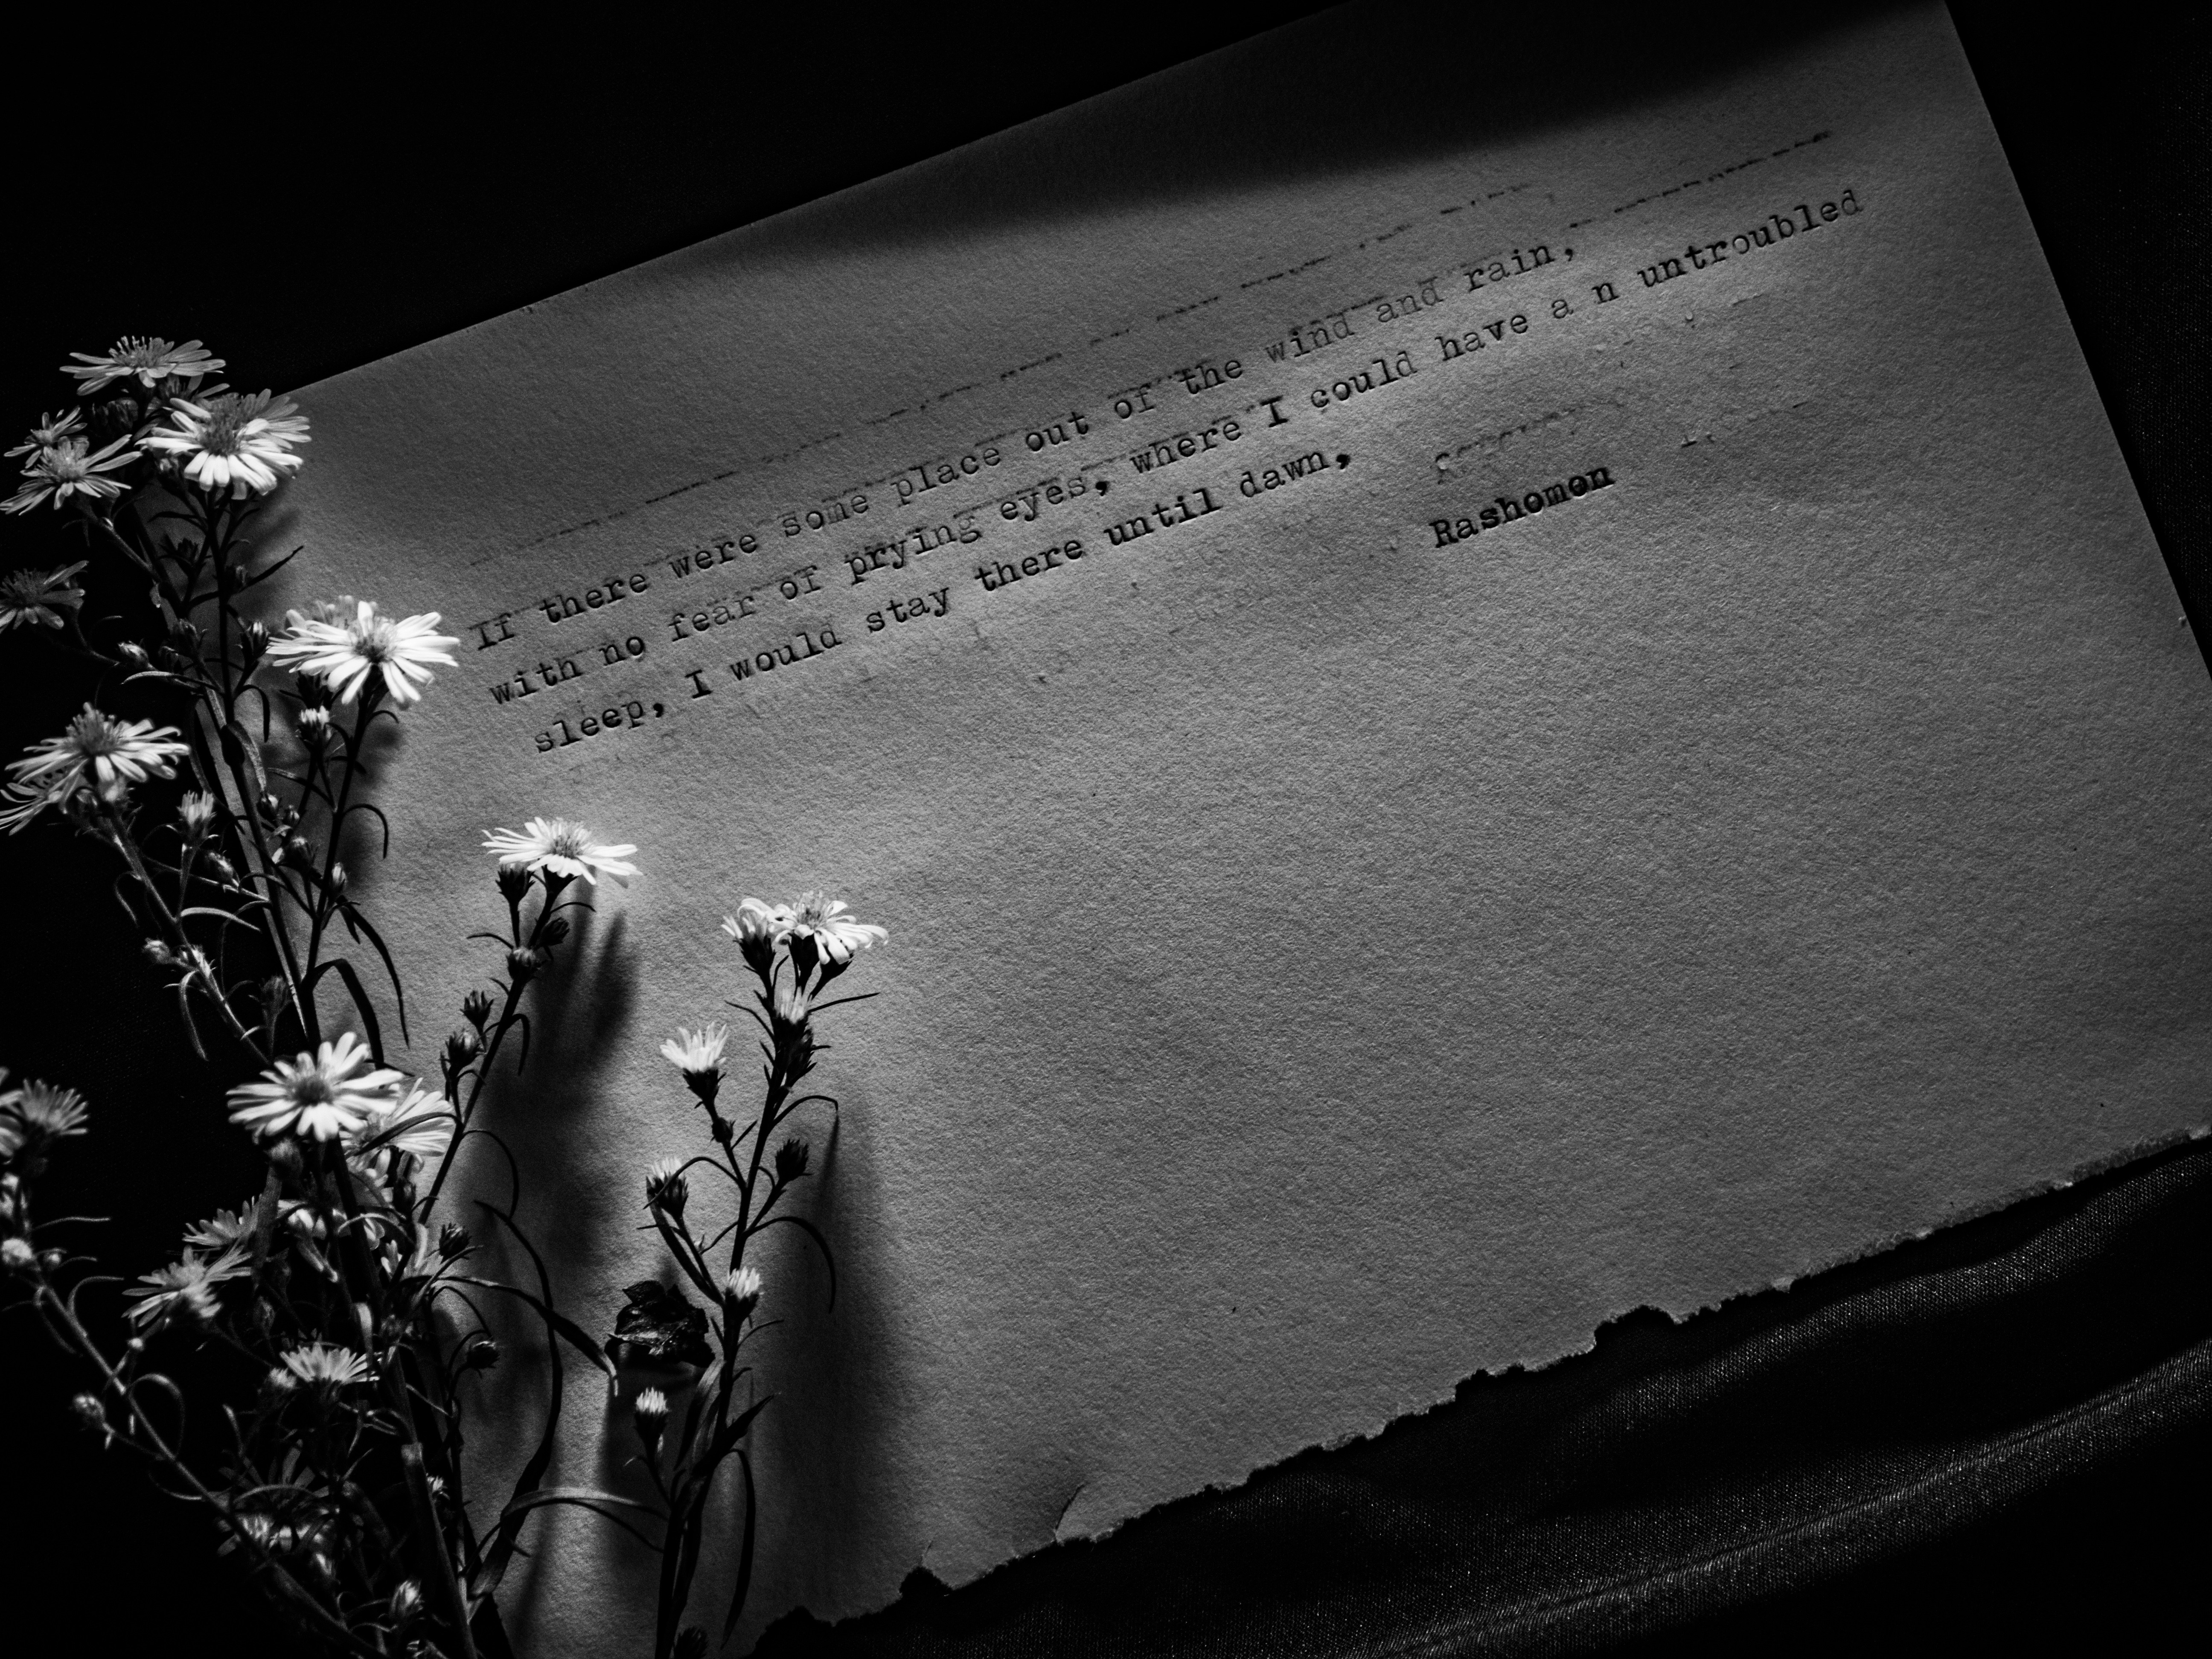 If there were some place out of the wind and rain,
with no fear of prying eyes, where I could have a n untroubled
sleep, I would stay there until dawn,
Rashomon